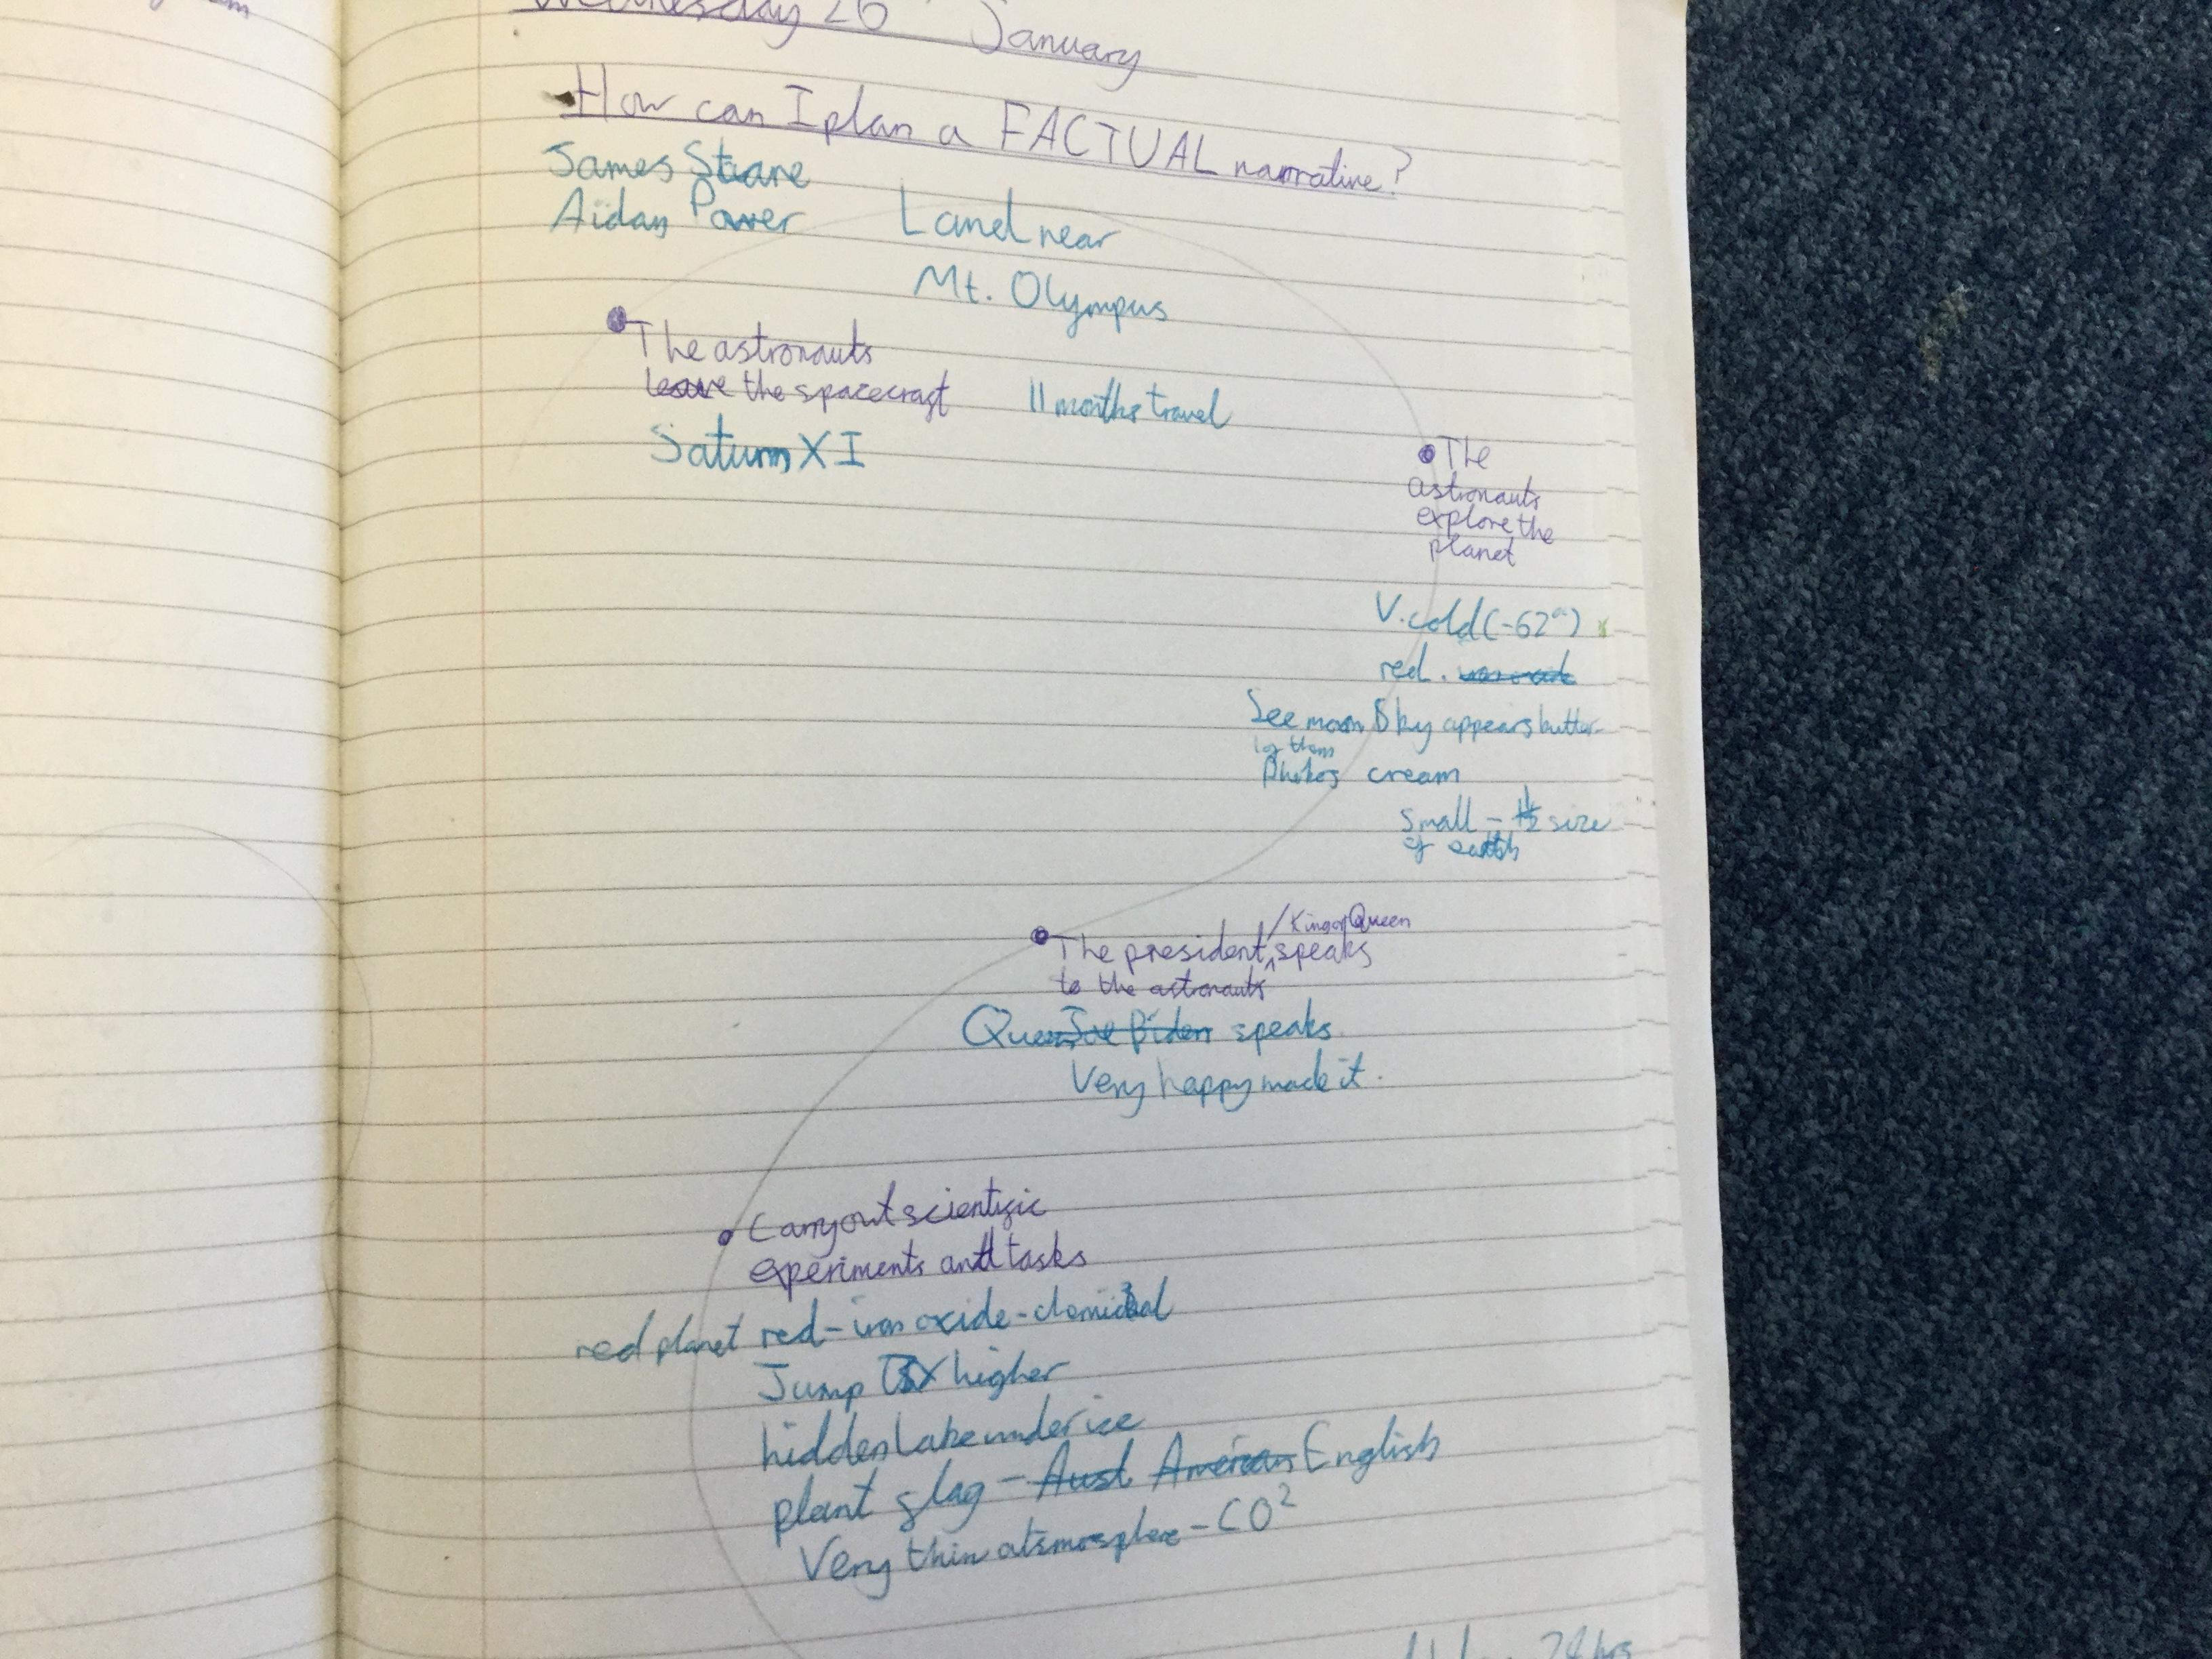 Wednesday 26 January
How can I plan a FACTUAL narrative?
James Stare
Aidan Power
Land near
Mt. Olympus
The astronauts
leave the spacecraft
11 months travel
Saturn XI
The
astronauts
explore the
planet
V. cold (-62°)
red.
See moon
to them
Photos
Sky appears butter-
cream
Small - ½ size
of earth
The president / King or Queen speaks
to the astronauts
Queen Joe Biden speaks.
Very happy made it.
Carry out scientific
experiments and tasks
red planet red - iron oxide - chemical
Jump 3X higher
hidden lake under ice
plant flag - Aust American English
Very thin atsmosphere - CO²
24 hrs